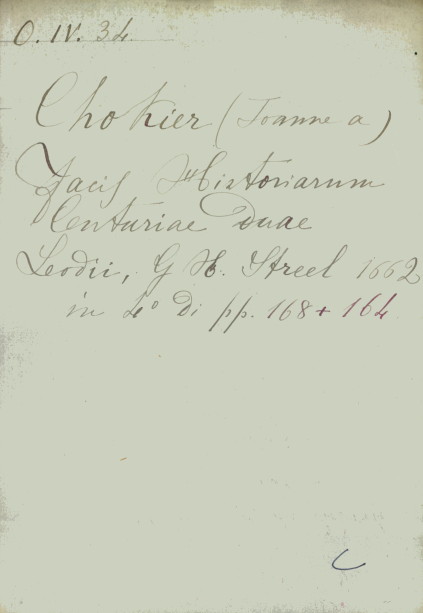 O. IV. 34
Chokier (Joanne a)
Facis Historiarum
Centuriae Duae
Leodii, G H. Streel 1662
in 4° di pp. 168 + 164
C